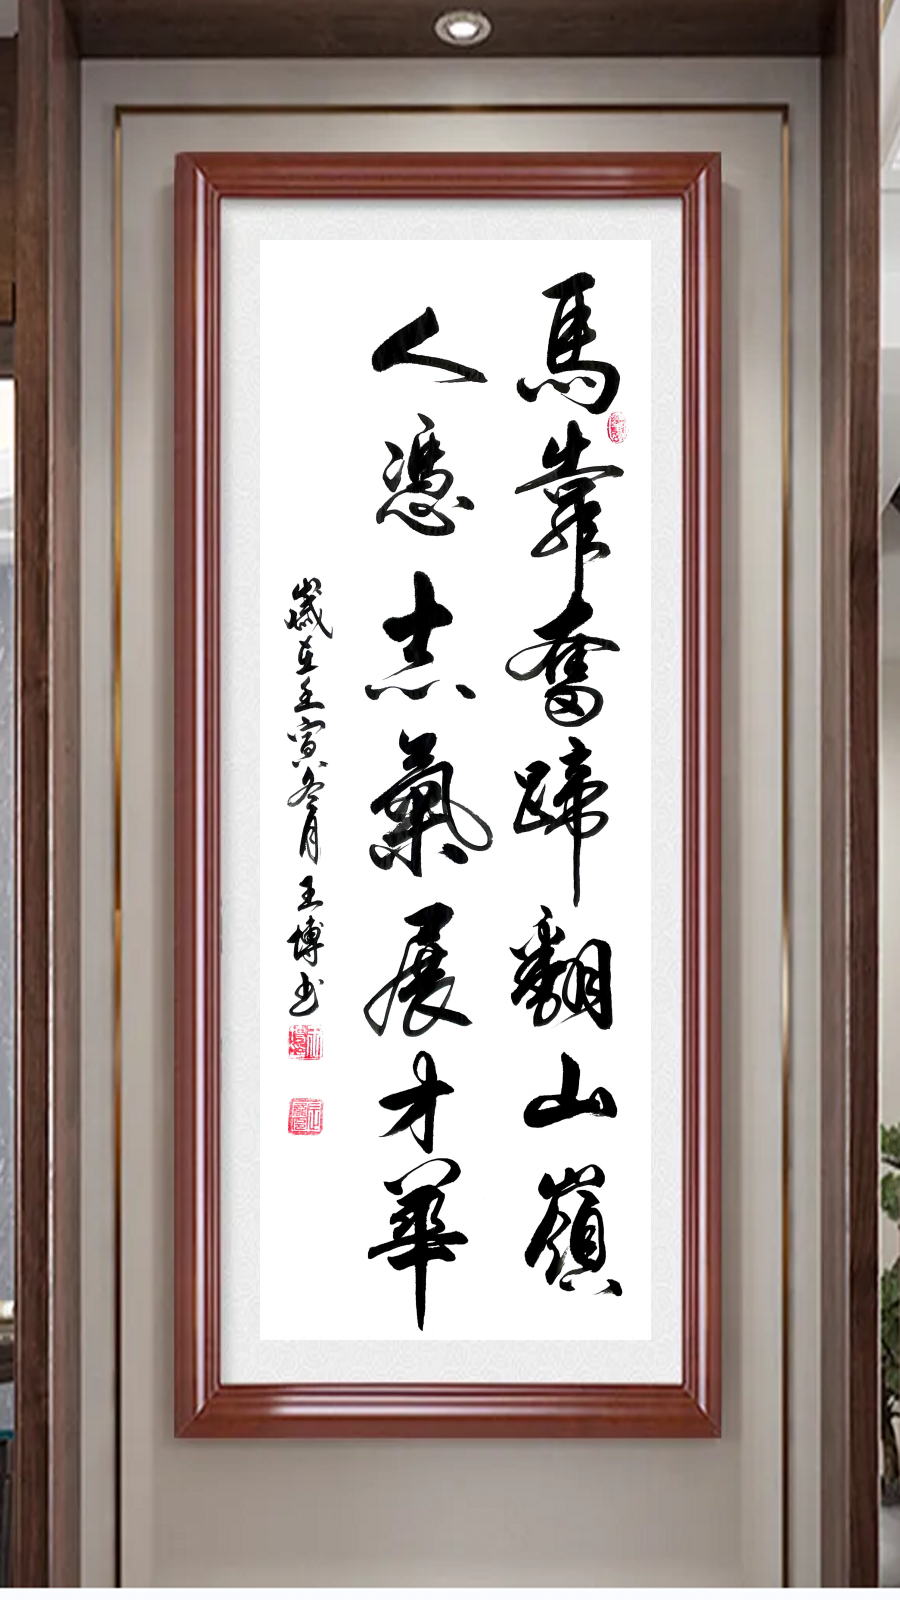 馬靠奮蹄翻山嶺
人憑志氣展才華
歲在壬寅冬月王博书